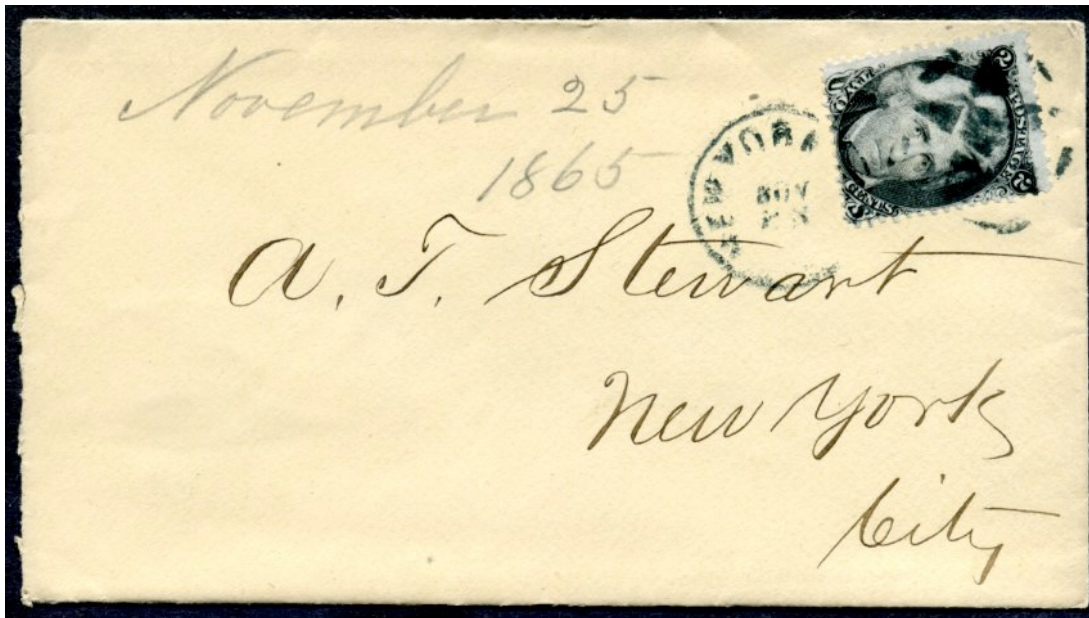 November 25
1865
NEW YORK
NOV
A. T. Stewart
New York
City
U POSTAGE
2 2